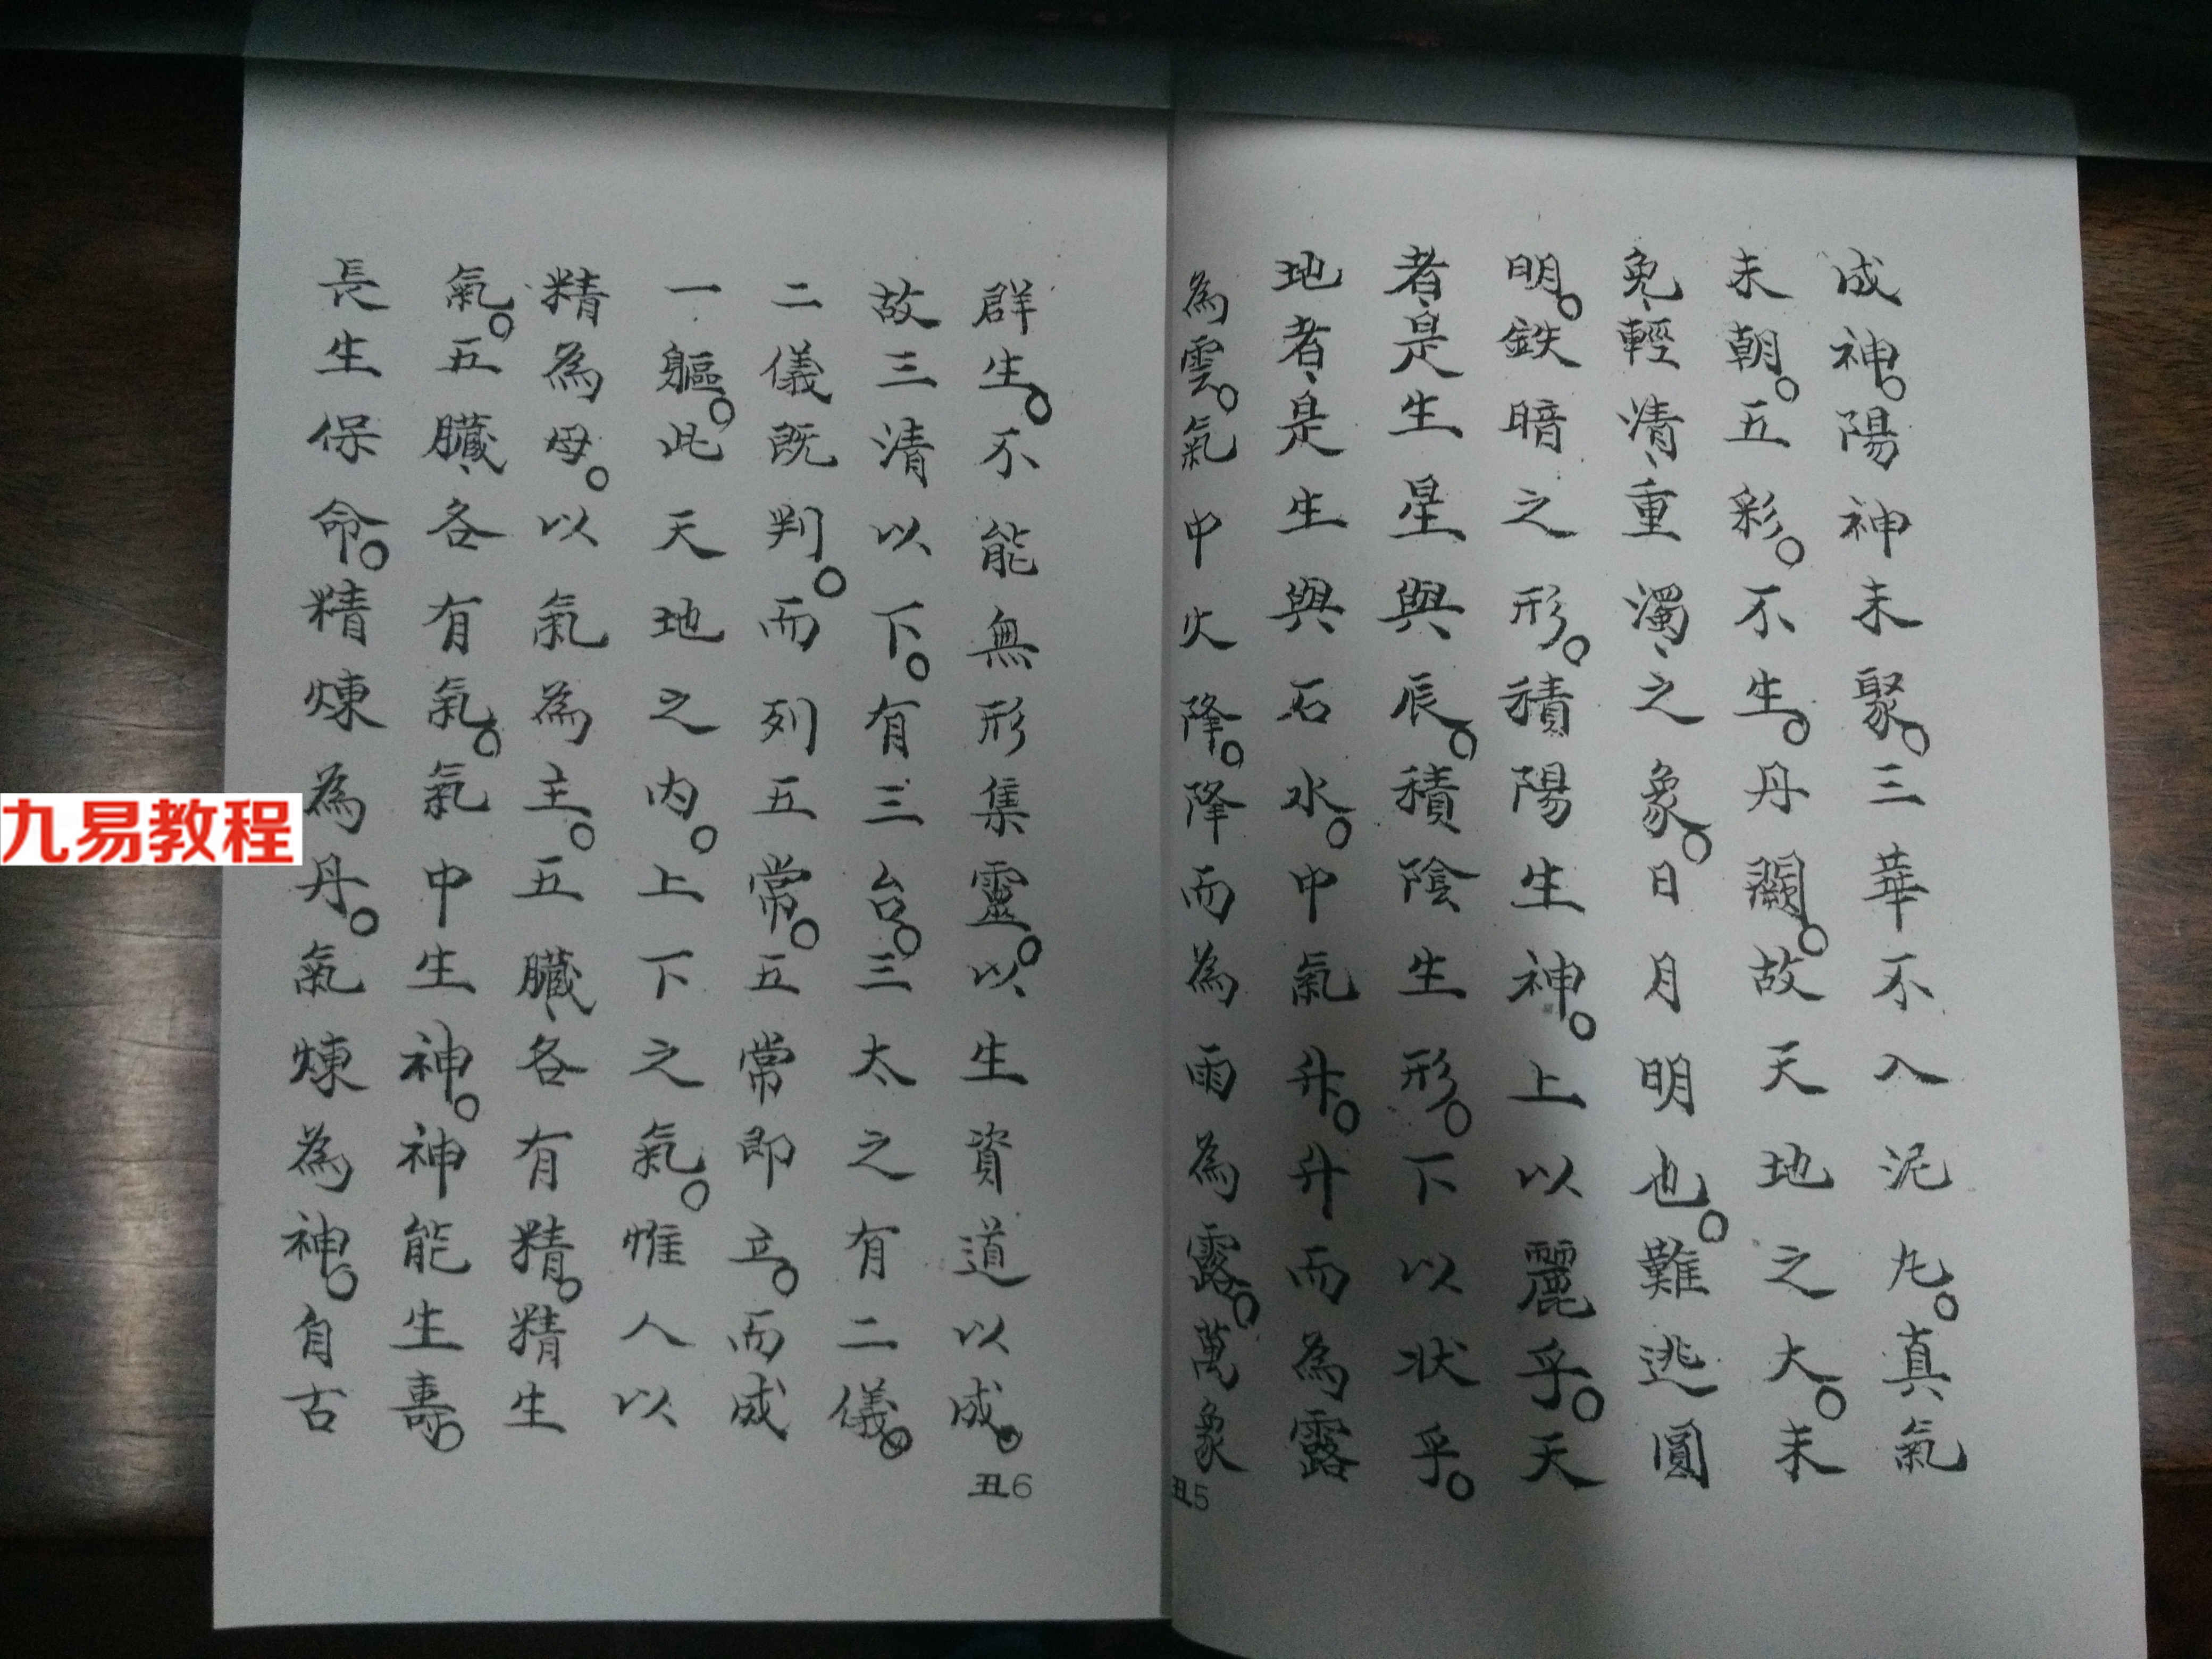 成神。陽神未聚。三華不入泥丸。真氣
未朝。五彩。不生。丹闕。故天地之大。未
免、輕清、重濁、之象。日月明也。難逃圓
明。鉄暗之形。積陽生神。上以麗乎。天
者、是生星與辰。積陰生形。下以狀乎。
地者、是生與石水。中氣升。升而為露
為雲。氣中火降。降而為雨為露。萬象
丑5
群生。不能無形集靈。以生資道以成。
故三清以下。有三台。三太之有二儀。
二儀既判。而列五常。五常即立。而成
一軀。此天地之內。上下之氣。惟人以
精為母。以氣為主。五臟、各有精。精生
氣。五臟、各有氣。氣中生神。神能生壽。
長生保命。精煉為丹。氣煉為神。自古
丑6
九易教程